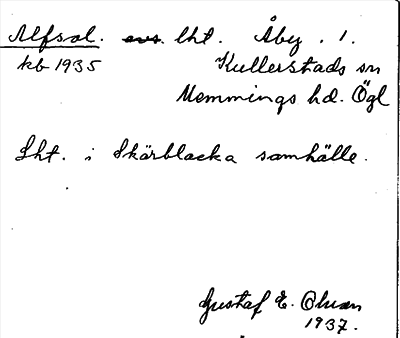 Alfsol. avs. lht. Åby. 1.
kb 1935 Kullerstads sn
Memmings hd. Ögl
Lht. i Skärblacka samhälle.
Gustaf E. Olsson
1937.